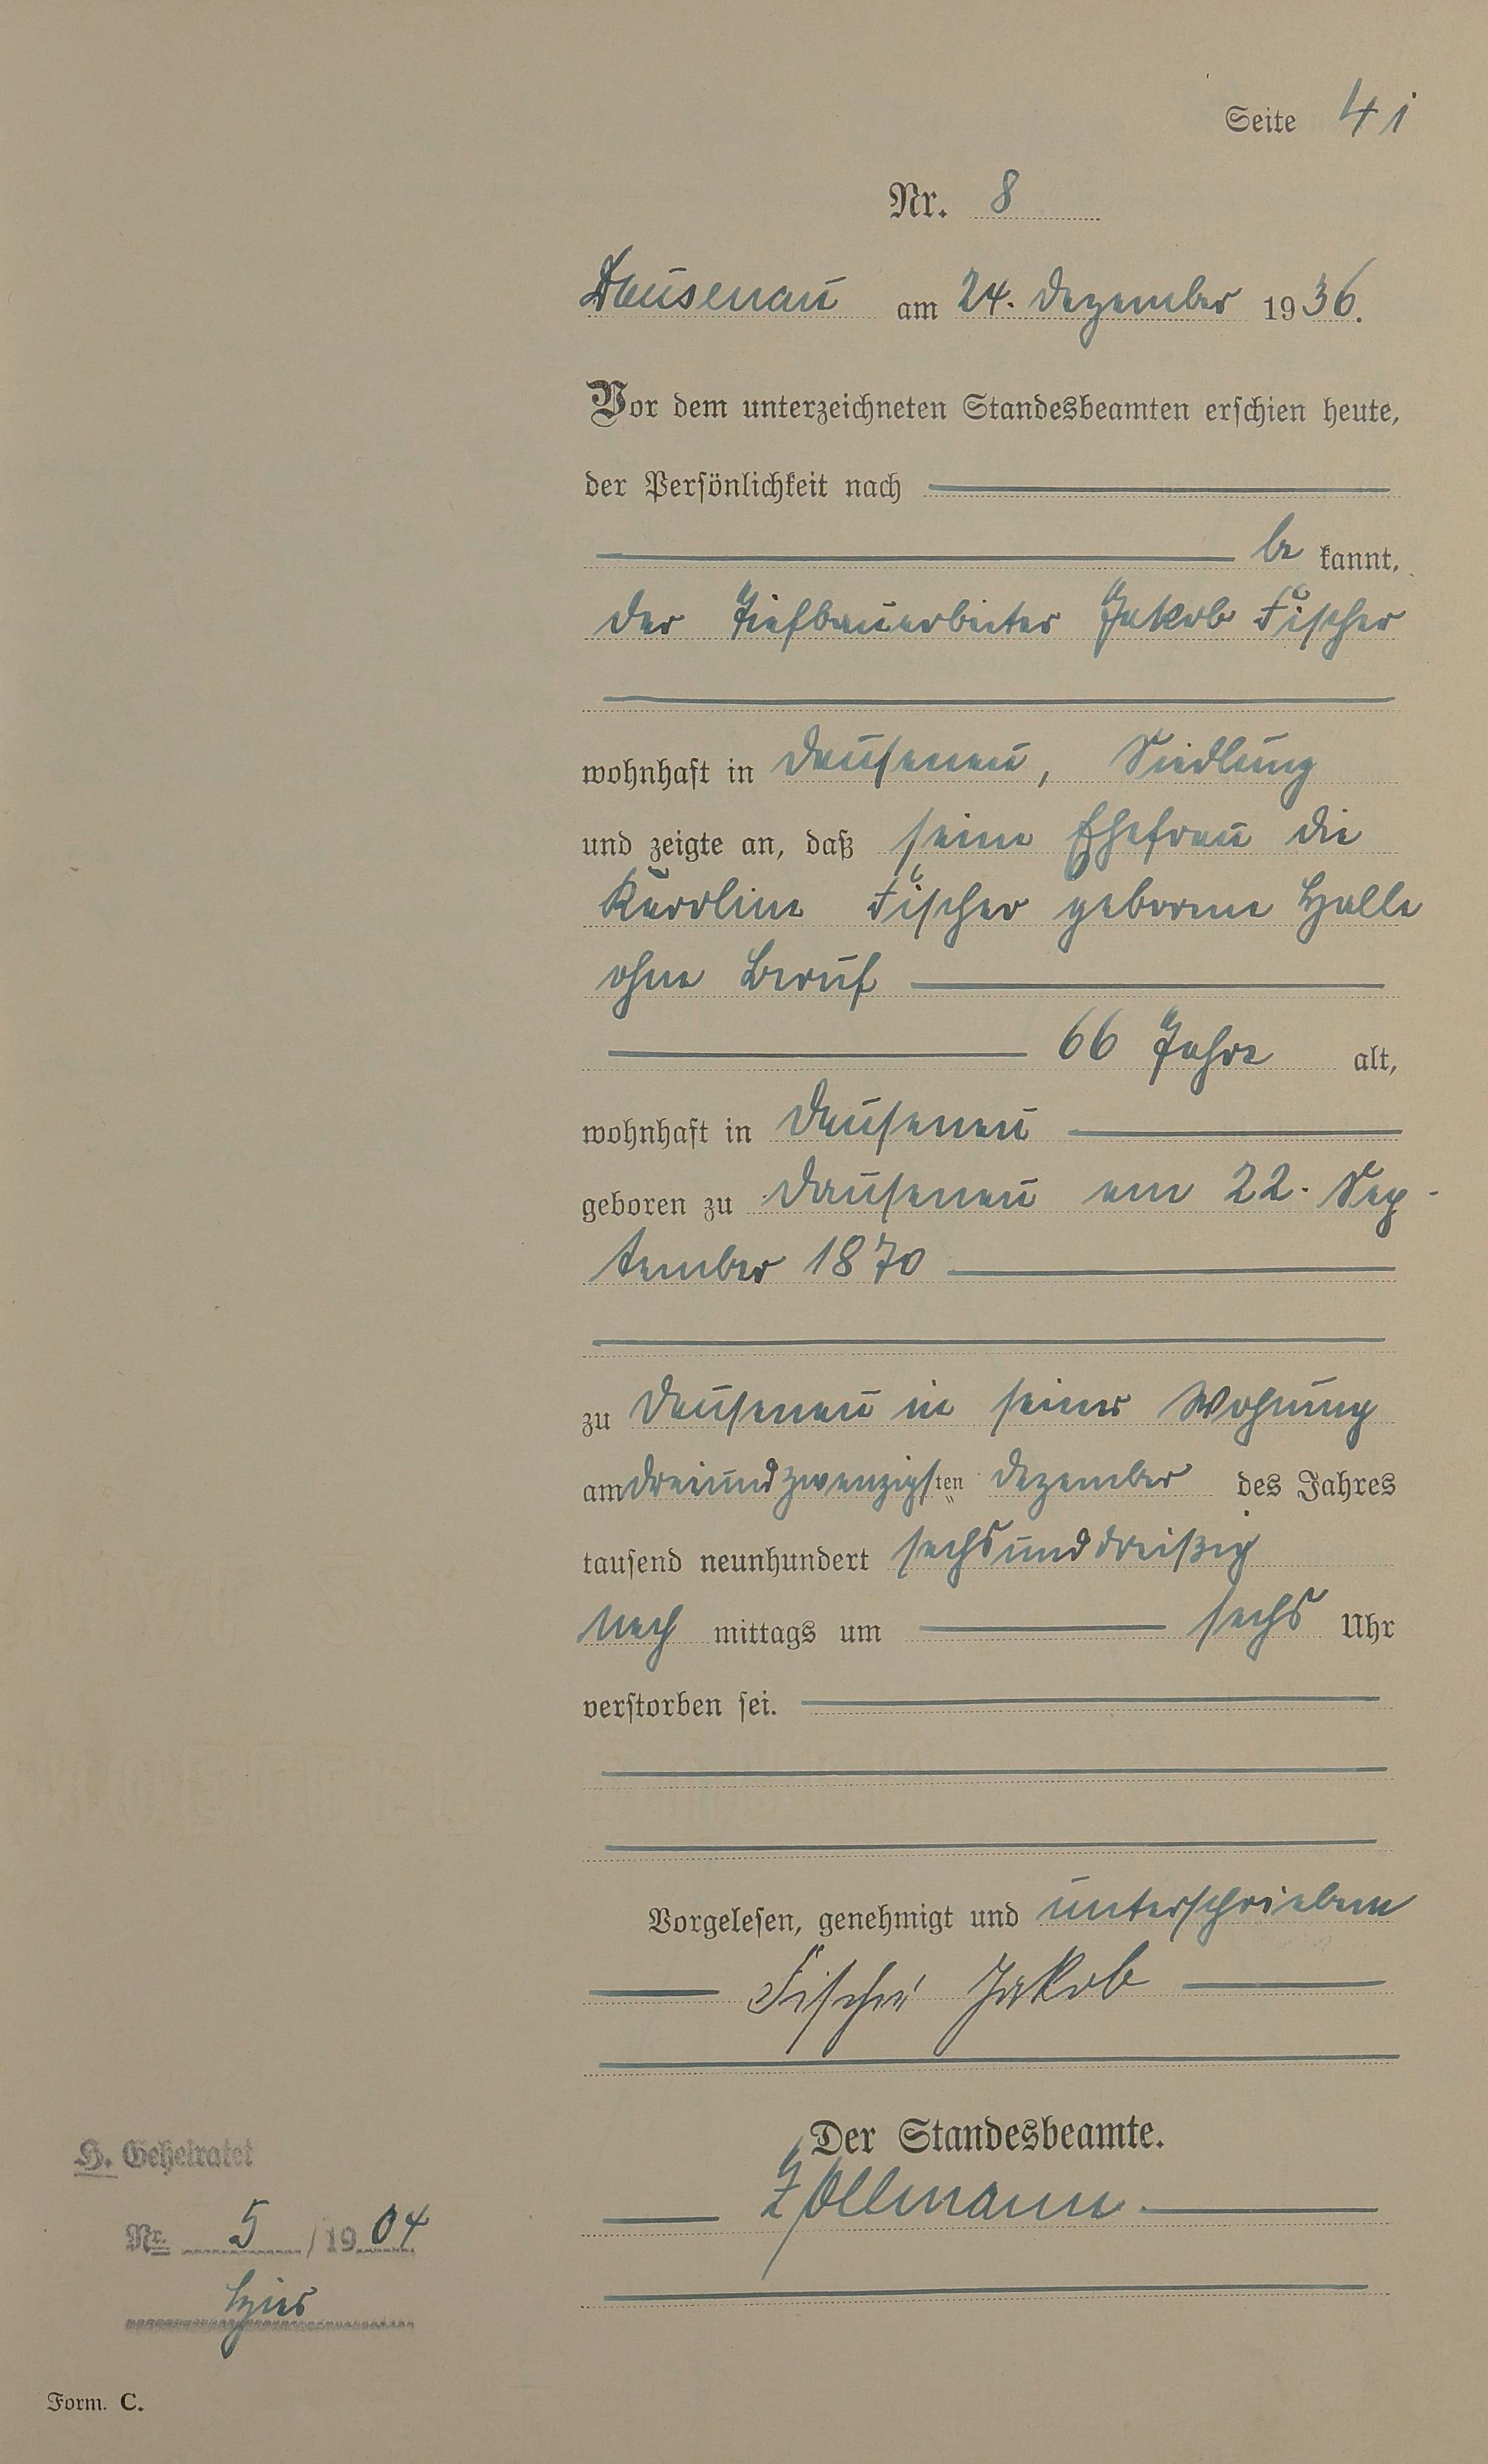 Seite 41
Nr. 8
Dausenau am 24. Dezember 1936.
Vor dem unterzeichneten Standesbeamten erschien heute,
der Persönlichkeit nach
be kannt,
der Tiefbauarbeiter Jakob Fischer
wohnhaft in Dausenau, Siedlung
und zeigte an, daß seine Ehefrau die
Karoline Fischer geborene Halle
ohne Beruf
66 Jahre alt,
wohnhaft in Dausenau
geboren zu Dausenau am 22. Sep-
tember 1870
zu Dausenau in seiner Wohnung
am dreiundzwanzigsten Dezember des Jahres
tausend neunhundert sechsunddreißig
Nach mittags um sechs Uhr
verstorben sei.
Vorgelesen, genehmigt und unterschrieben
Fischer Jakob
Der Standesbeamte.
Zollmann
H. Geheiratet
Nr. 5 / 19 04
hier
Form. C.